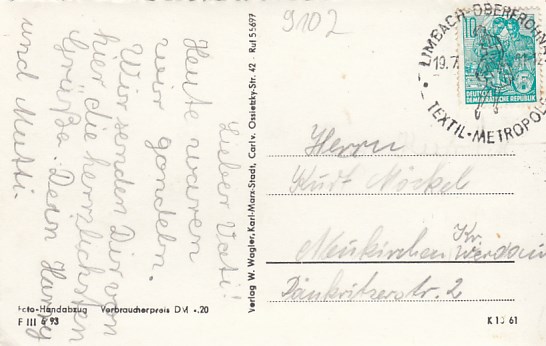 9102
Lieber Vati!
Heute waren
wir gondeln.
Wir senden Dir von
hier die herzlichsten
Grüße. Dein Harry
und Mutti.
Foto-Handabzug Verbraucherpreis DM -,20
F III 6 93
Verlag W. Wagler, Karl-Marx-Stadt, Carl v. Ossietzky-Str. 42 · Ruf 55697
LIMBACH-OBERFROHNA
19.7.
TEXTIL-METROPOLE
10
5
DEUTSCHE
DEMOKRATISCHE REPUBLIK
Herrn
Kurt Nöckel
Neukirchen Kr. Werdau
Dänkritzerstr. 2
K 10 61